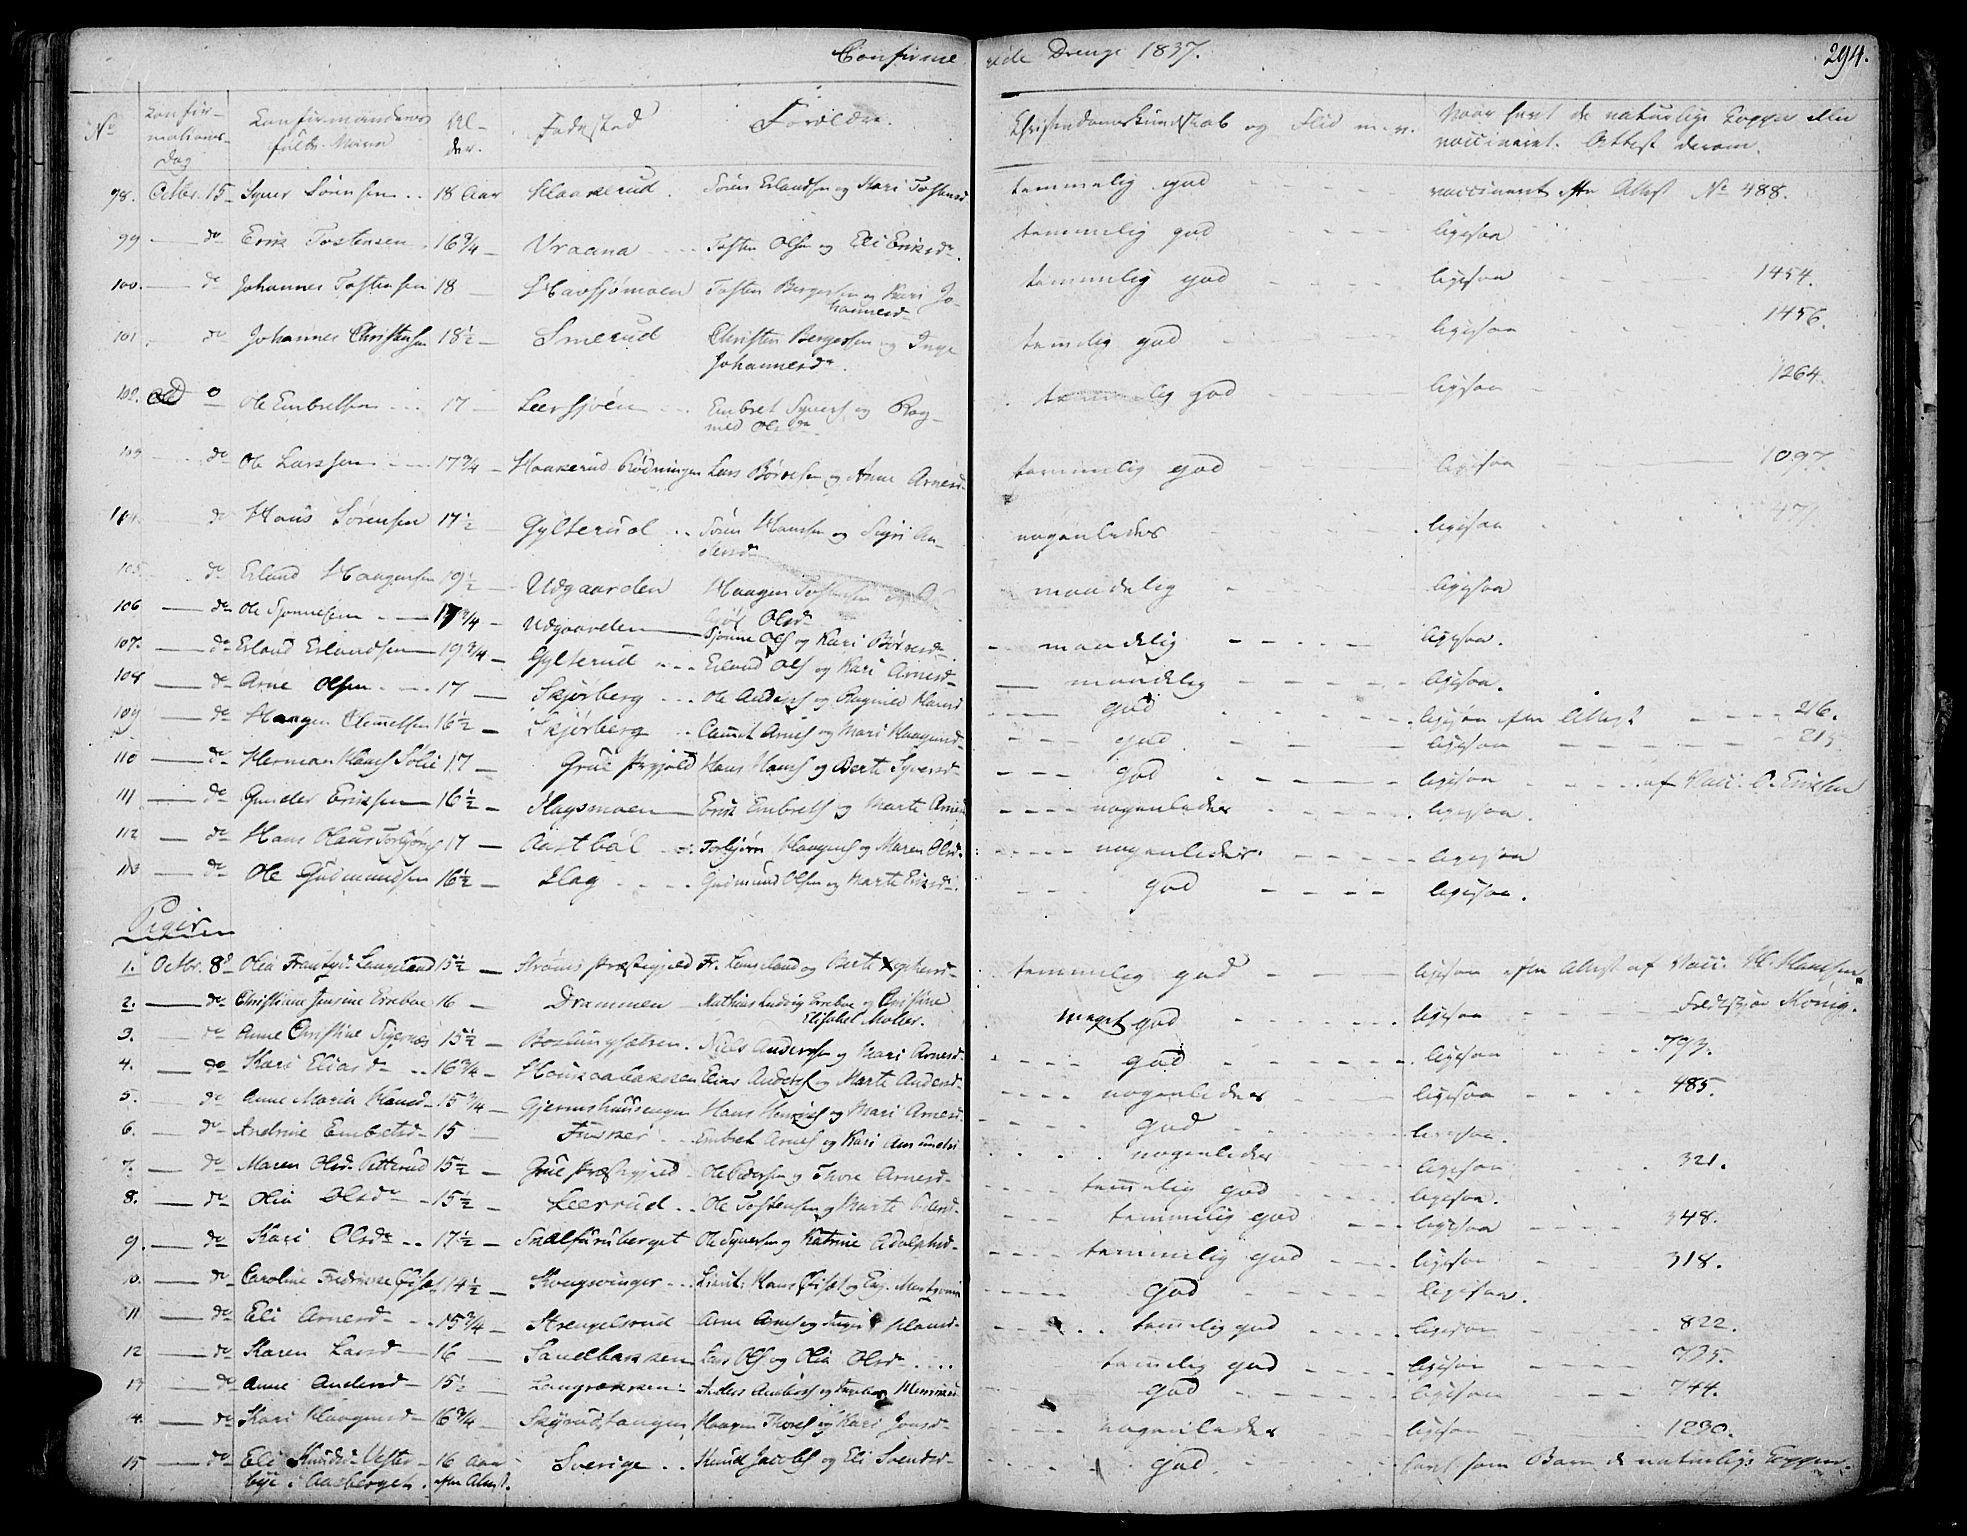 Confirmerede Drenge 1837. 294.
No Confirmations Dag Confirmandernes fulde Navn Alder. Fødested Forældre. Christendoms Kundskab og Flid m. v. Naar havt de naturlige Kopper eller vaccineret. Attest derom.
98. Octbr. 15 Syver Sørensen 18 Aar Haakerud Søren Erlandsen og Kari Tostensd. temmelig god vaccineret efter Attest No 488.
99 do Erik Tostensen 16 3/4 Vraana Tosten Olsen og Eli Eriksdr. temmelig god ligesaa
100. do Johannes Tostensen 18 Havsjømoen Tosten Bergersen og Kari Johannesd temmelig god ligesaa 1454.
101. do Johannes Christensen 18 1/2 Smerud Christen Bergersen og Inge Johannesdr. temelig god ligesaa 1456.
102. do Ole Embretsen 17 Leersjøen Embret Syvers og Ragned Olsdr temmelig god ligesaa 1264.
103 do Ole Larssen 17 3/4 Haakerud Rødningen Lars Børresen og Anne Arnesd temmelig god ligesaa 1097.
104. do Hans Sørensen 17 1/2 Gylterud Søren Hansen og Sigri nogenledes ligesaa 471
105. do Erland Haagensen 19 1/2 Udgaarden Haagen Tostensen og Olsd maadelig ligesaa
106 do Ole Tjønnesen 17 3/4 Udgaarden Tjønne Ols og Kari Børresd. maadelig ligesaa.
107. do Erland Erlandsen 19 3/4 Gylterud Erland Ols og Kari Arnesd maadelig ligesaa.
108 do Arne Olsen 17 Skjørberg Ole Anders og Ragnild Hansd god ligesaa efter Attest 216.
109 do Haagen Clemetsen 16 1/2 Skjørberg Clemet Arnes og Mari Haagensd god ligesaa 215
110 do Herman Hans Solie 17 Grue Prgjeld Hans Hans og Berte Syversd god ligesaa af Vacc. O. Eriksen
111 do Gunder Eriksen 16 1/2 Hagsmoen Erik Embrets og Marte Arnesd nogenledes ligesaa.
112 do Hans Olaus Torbjørns 17 Aastbøl Torbjørn Haagens og Maren Olsd. nogenledes. ligesaa
113 do Ole Gudmundsen 16 1/2 Hag Gudmund Olsen og Marte Eriksd. god ligesaa.
Piger
1. Octbr. 8de Olia Frantzd. Lengeland 15 1/2 Strøms Præstegjeld Fr. Lengeland og Berte temmelig god ligesaa efter Attest af Vacc. H. Hansen.
2. do Christiane Jensine Erreboe 16 Drammen Mathias Ludvig Erreboe og Christine Elisabet Møller. meget god ligesaa König.
3. do Anne Christine Sigernæs 15 1/2 Niels Andersen og Mari Arnesd god ligesaa 793.
4. do Kari Eliasdr 16 3/4 Houkaabakken Elias Anders og Marte Andersd nogenledes ligesaa 485.
5. do Anne Maria Hansd 15 3/4 Gjermshuusengen Hans Henriks og Mari Arnesd. god ligesaa.
6. do Andrine Embretsd 15 Fusker Embret Arnes og Kari Amundsd nogenledes ligesaa 321.
7. do Maren Olsd. Petterud 15 1/2 Grue Præstegjeld Ole Pedersen og Thore Arnesd temelig god ligesaa.
8. do Olia Olsdr 15 1/2 Leerrud Ole Tostensen og Marte temmelig god ligesaa 348.
9. do Kari Olsdr 17 1/2 Smalfuruberget Ole Syversen og Katrine Adolphsd temmelig god ligesaa 318.
10. do Caroline Fredrikke 14 1/2 Kongsvinger Lieut. Hans og god ligesaa.
11 do Eli Arnesd 15 3/4 Strengelsrud Arne Arnes og Inger Hansd temelig god ligesaa 822.
12 do Karen Larsd 16 Sandbakken Lars Ols og Olia Olsdr temelig god ligesaa 735.
13 do Anne Andersd 15 1/2 Langrækken Anders god ligesaa 744.
14. do Kari Haagensd 16 3/4 Skyrudstangen Haagen Thores og Kari Jonsd nogenledes ligesaa 1290.
15 do Eli Knudsd. Vesterbye i Aasberget. 16 Aar efter Attest. Sverige Knud Jacobs og Eli Svendsd god havt som Barn de naturlige Kopper.